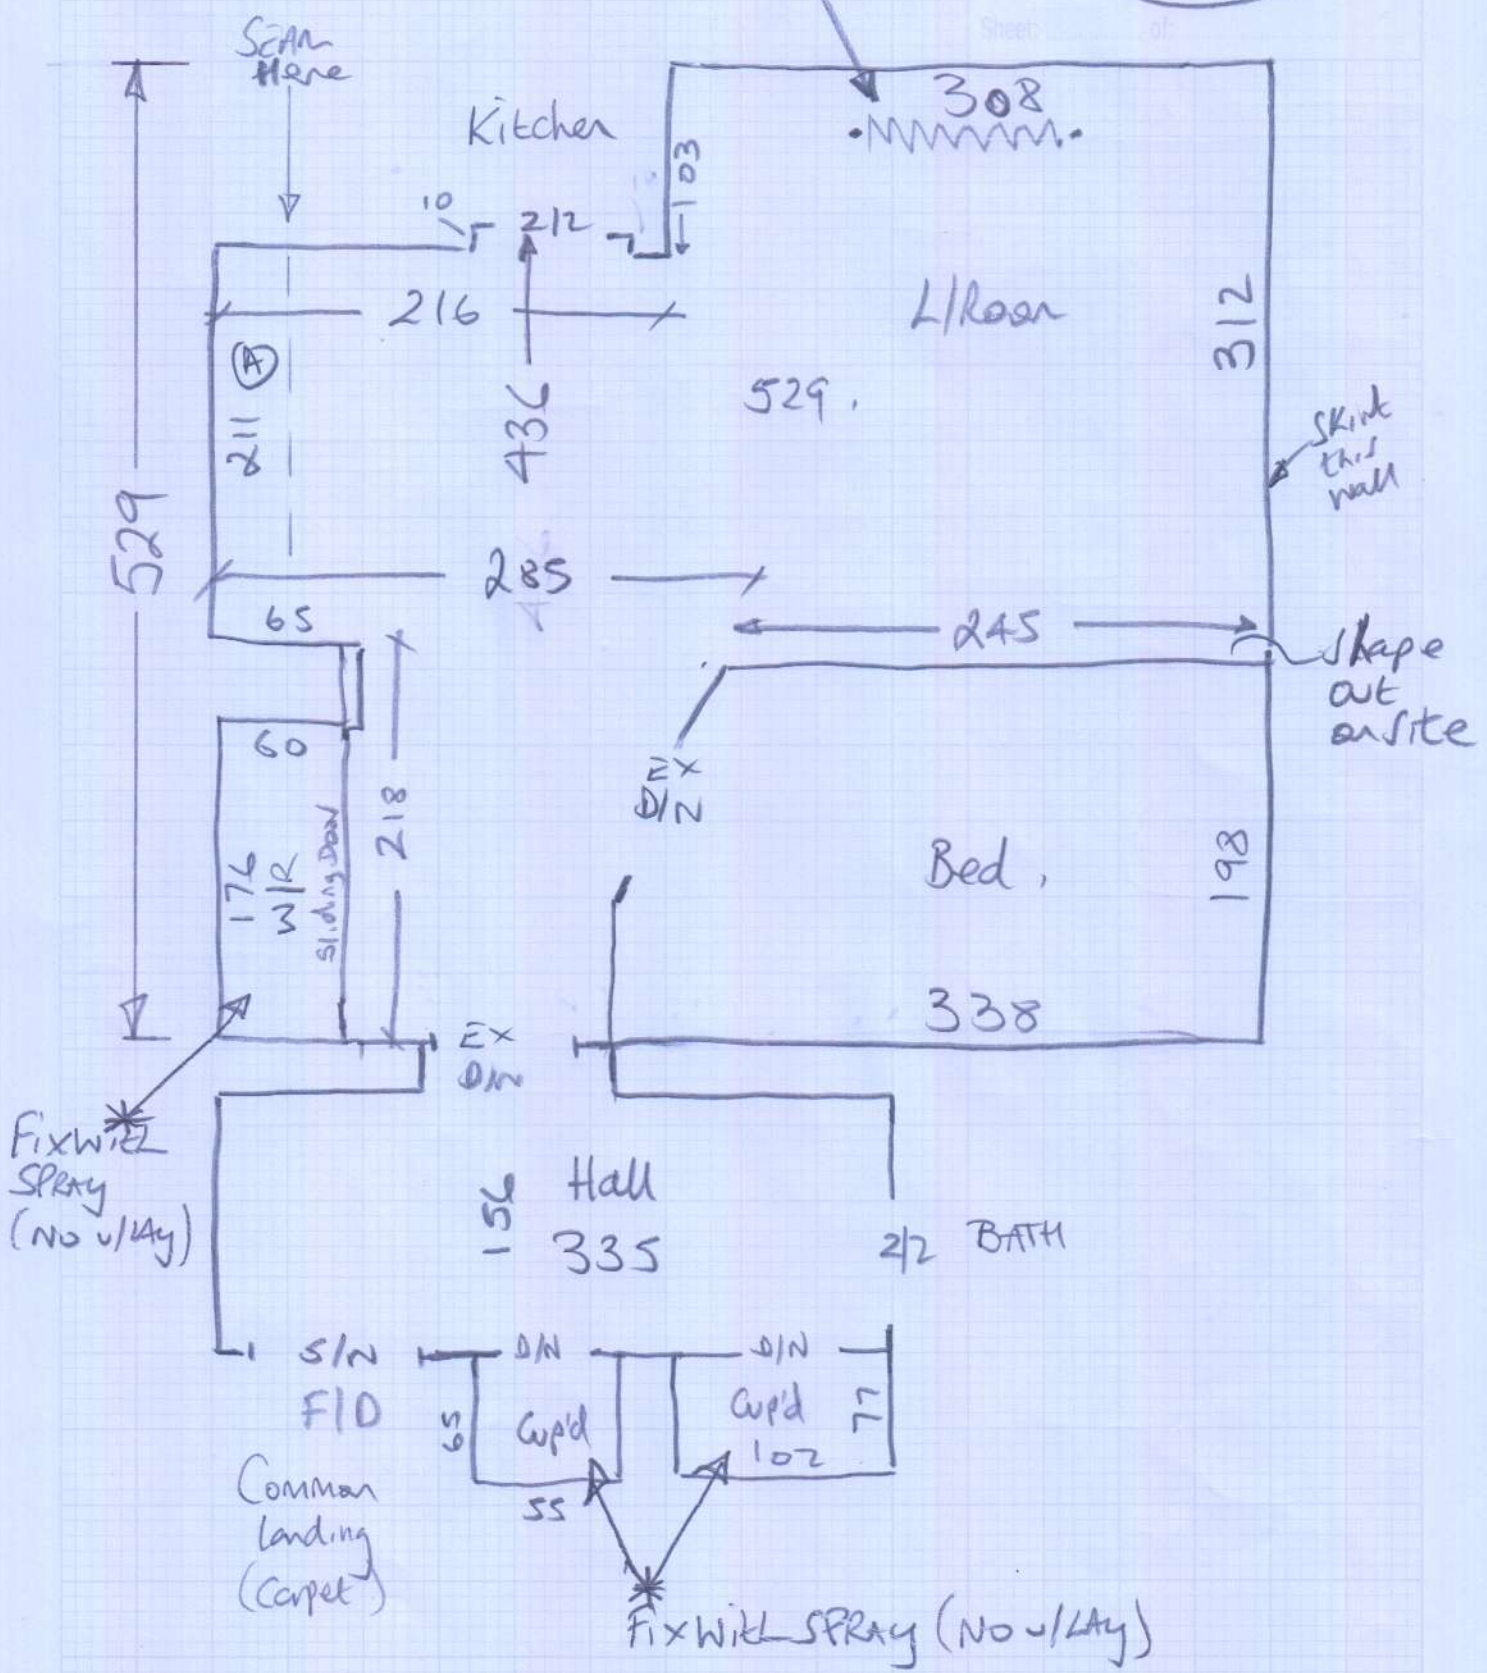 Sheet: of:
SEAM
Here
Kitchen
308
103
10
212
216
L/Room
312
A
211
436
529.
Skirt
this
wall
529
285
65
245
Shape
out
onsite
60
EX
D/N
218
176
Sliding Door
Bed.
198
338
EX
D/N
FixWitL
SPRAy
(No u/LAy)
Hall
156
335
2/2 BATH
S/N
D/N
D/N
F/D
65
Cup'd
Cup'd
77
102
55
Common
Landing
(Carpet)
FixWitL SPRAy (No u/LAy)